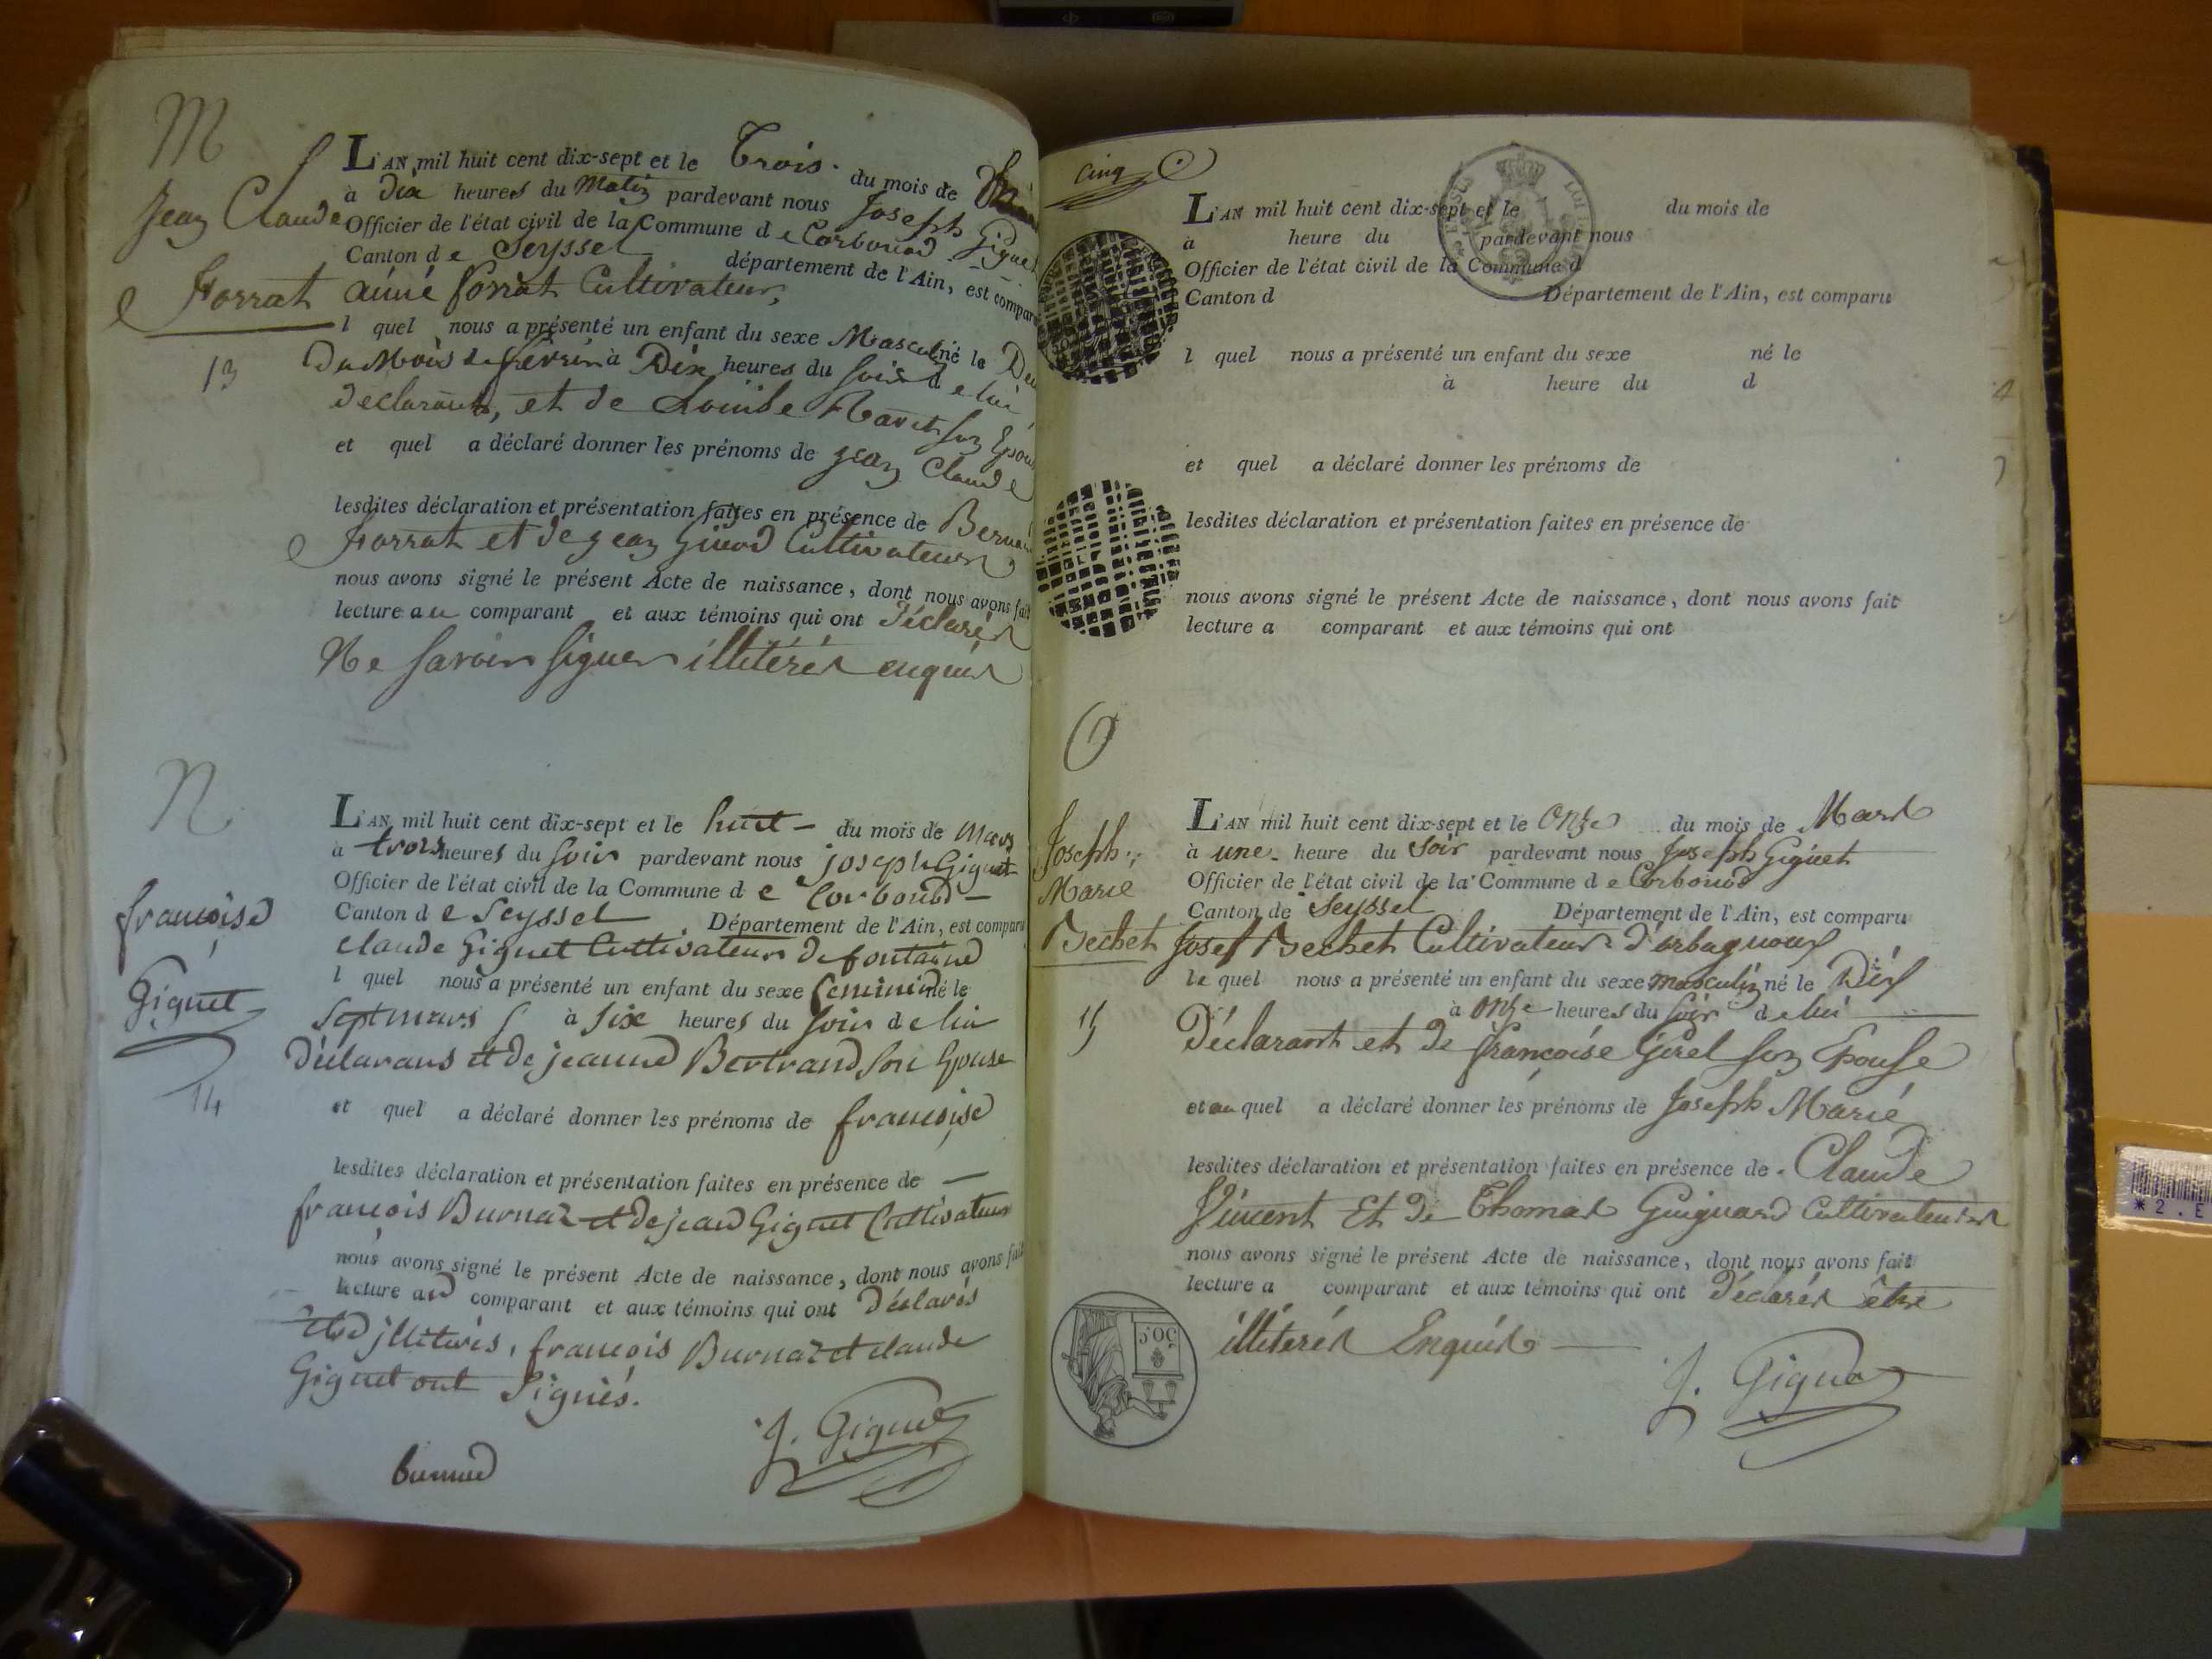 M
Jean Claude
Forrat
13
L'AN mil huit cent dix-sept et le Trois du mois de
à dix heures du Matin pardevant nous Joseph Giguet
Officier de l'état civil de la Commune de Corbonod
Canton de Seyssel département de l'Ain, est compar
aimé forrat Cultivateur,
l quel nous a présenté un enfant du sexe Masculin né le
Du Mois de fevrier à Dix heures du soir de lui
Declarant, et de Louise Ravet son Epouse
et quel a déclaré donner les prénoms de jean Claude
lesdites déclaration et présentation faites en présence de Bernard
forrat et de jean Girod Cultivateurs
nous avons signé le présent Acte de naissance, dont nous avons fait
lecture au comparant et aux témoins qui ont Déclarés
Ne savoir signer illitérés enquis
N
françoise
Giguet
14
L'AN mil huit cent dix-sept et le huit - du mois de Mars
à trois heures du soir pardevant nous joseph Giguet
Officier de l'état civil de la Commune de Corbonod -
Canton de Seyssel Département de l'Ain, est comparu
claude Giguet Cultivateur de fontaine
l quel nous a présenté un enfant du sexe feminin né le
Sept mars à six heures du soir de lui
Déclarans et de jeanne Bertrand son Epouse
et quel a déclaré donner les prénoms de françoise
lesdites déclaration et présentation faites en présence de -
françois Burnaz et de jean Giguet Cultivateurs
nous avons signé le présent Acte de naissance, dont nous avons fait
lecture au comparant et aux témoins qui ont Déclarés
etre jlliterés, françois Burnaz et claude
Giguet ont Signés.
J. Giguet
burnaz
cinq
L'AN mil huit cent dix-sept et le du mois de
à heure du pardevant nous
Officier de l'état civil de la Commune d
Canton d Département de l'Ain, est comparu
l quel nous a présenté un enfant du sexe né le
à heure du d
et quel a déclaré donner les prénoms de
lesdites déclaration et présentation faites en présence de
nous avons signé le présent Acte de naissance, dont nous avons fait
lecture a comparant et aux témoins qui ont
O
Joseph
Marie
Bechet
15
L'AN mil huit cent dix-sept et le Onze du mois de Mars
à une heure du Soir pardevant nous Joseph Giguet
Officier de l'état civil de la Commune de Corbonod
Canton de Seyssel Département de l'Ain, est comparu
Josef Bechet Cultivateur d'orbagnoux
le quel nous a présenté un enfant du sexe masculin né le Dix
à onze heures du soir de lui
Déclarant et de françoise Girel son Epouse
et au quel a déclaré donner les prénoms de Joseph Marie
lesdites déclaration et présentation faites en présence de Claude
Vincent Et de Thomas Guignard Cultivateurs
nous avons signé le présent Acte de naissance, dont nous avons fait
lecture a comparant et aux témoins qui ont Déclarés être
illiterés Enquis
50 c.
J. Giguet
*2.E